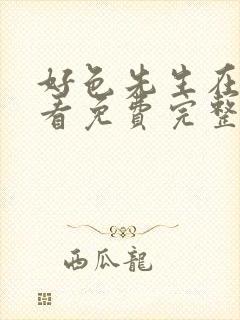 好色先生在
看免费完整
西瓜龍